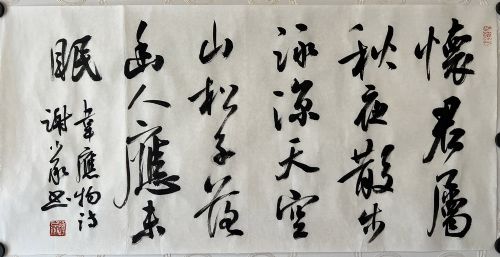 懷君屬
秋夜散步
詠涼天空
山松子落
幽人應未
眠
韋應物詩
謝 书